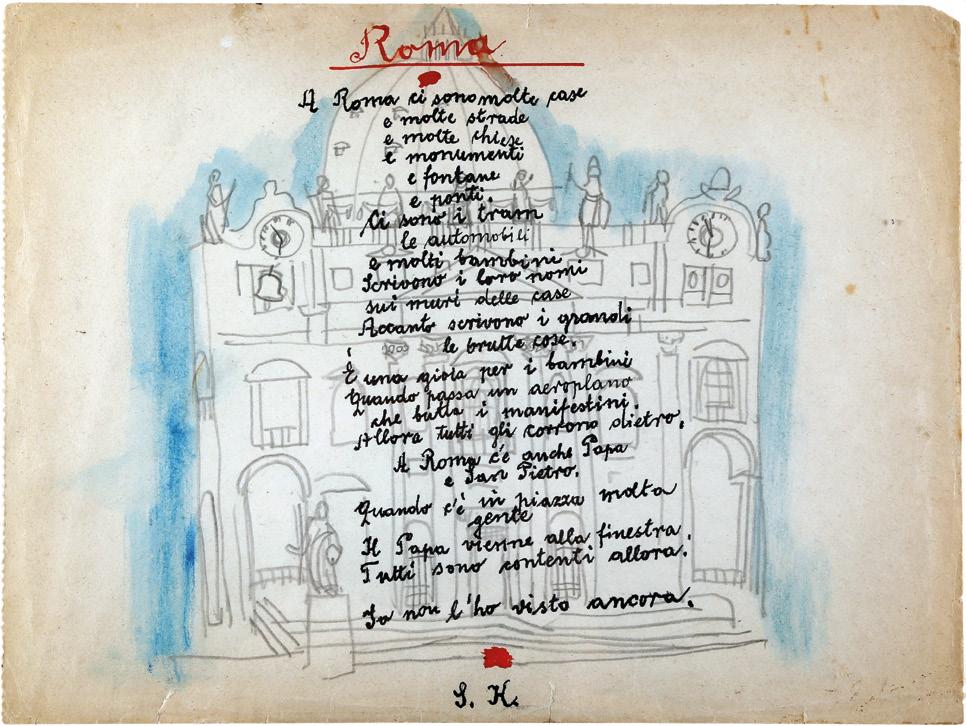 Roma
A Roma ci sono molte case
e molte strade
e molte chiese
e monumenti
e fontane
e ponti.
Ci sono i tram
le automobili
e molti bambini
Scrivono i loro nomi
sui muri delle case
Accanto scrivono i grandi
le brutte cose.
È una gioia per i bambini
Quando passa un aeroplano
che butta i manifestini.
Allora tutti gli corrono dietro.
A Roma c'è anche Papa
e San Pietro.
Quando c'è in piazza molta
gente
Il Papa vienne alla finestra.
Tutti sono contenti allora.
Io non l'ho visto ancora.
S. K.